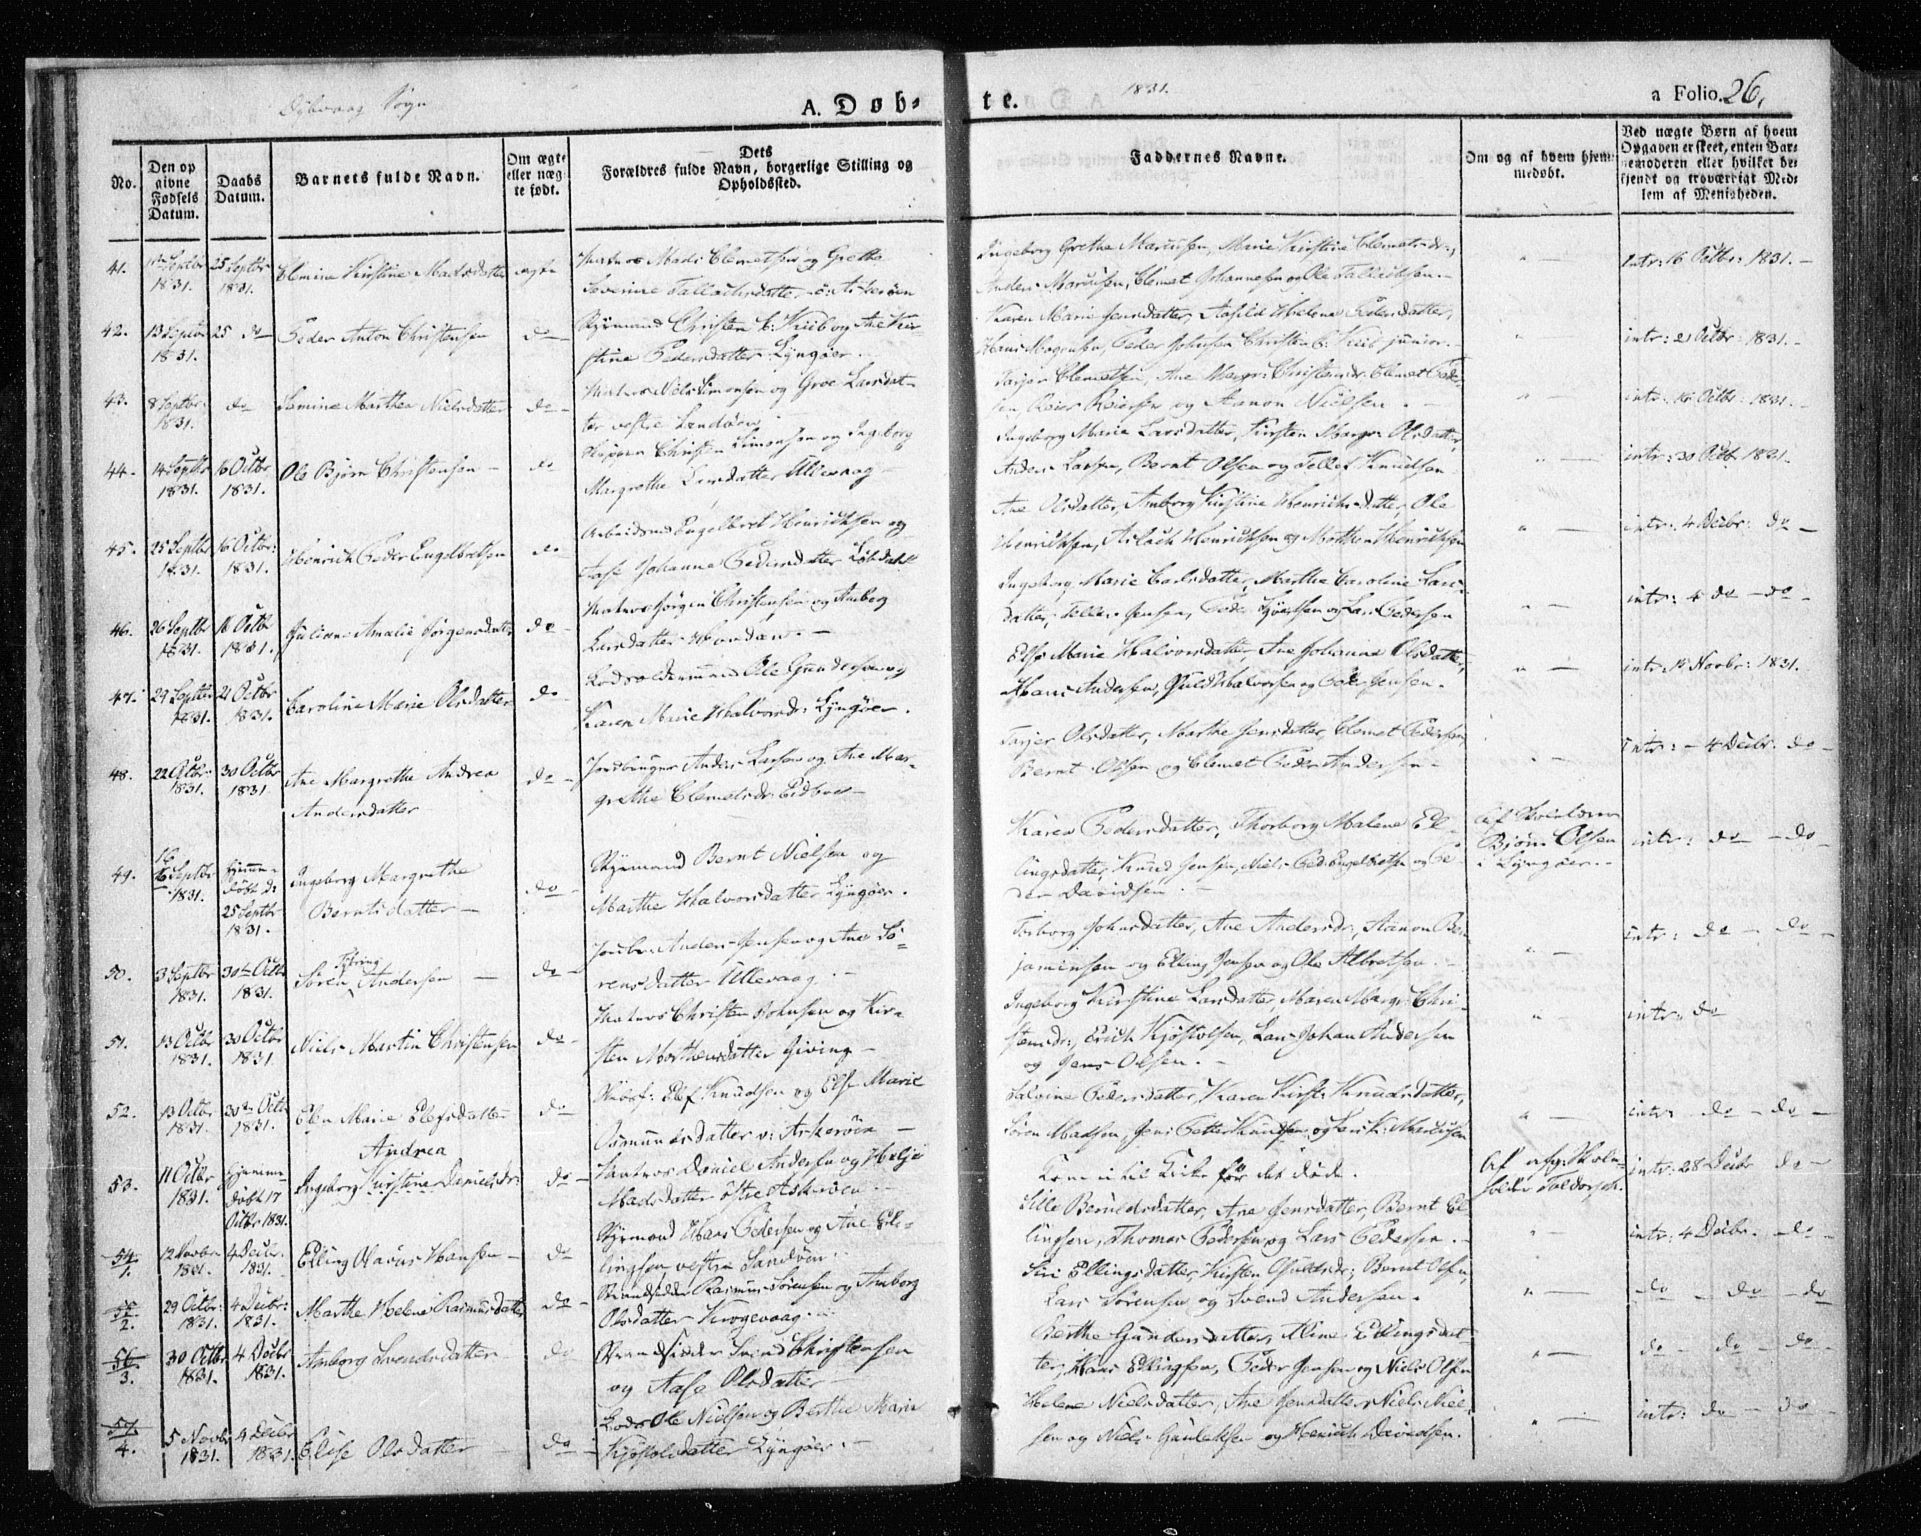 Dybvaag Sogn
A. Døb-
te.
1831.
a Folio. 26,
No.
Den opgivne Fødsels Datum.
Daabs Datum.
Barnets fulde Navn.
Om ægte eller nægte født.
Dets
Forældres fulde Navn, borgerlige Stilling og
Opholdssted.
Faddernes Navne.
Om og af hvem hjemmedøbt.
Ved nægte Børn af hvem
Opgaven er skeet, enten Bar-
nemoderen eller hvilket be-
kjendt og troværdigt Med-
lem af Menigheden.
41.
Septbr 1831.
25 Septbr 1831.
Clemine Kirstine Madsdatter
ægte
Matros Mads Clemetsen og Grethe
Severine Tallaksdatter Askerøen
Ingeborg Grethe Mariusen, Marie Kirstine Clemetsdr:,
Anders Mariusen, Clemet Johannesen Ole Tallaksen.
intr: 16 Octbr: 1831.
42.
13 Septbr 1831.
25 do
Peder Anton Christensen
do
Christen C: Kiib og Ane Kir
stine Pedersdatter Lyngøer.
Karen Marie Jensdatter, Helene Pedersdatter,
Hans Mogensen, Peder Johnsen Christen C. Kiib junior.
intr: 21 Octbr 1831.
43.
8 Septbr: 1831.
do
Samine Marthea Nielsdatter
do
Matros Niels Simonsen og Groe Larsdat-
ter vestre Sandøen
Tarjer Clemetsen, Ane Margr: Christensdr: Clemet Peder
sen, Reier Reiersen og Aanon Nielsen.
intr: 16 Octbr: 1831.
44.
14 Septbr 1831.
16 Octbr 1831.
Ole Bjørn Christensen
do
Skipper Christen Simonsen og Ingeborg
Margrethe Larsdatter Ulevaag
Ingeborg Marie Larsdatter, Kirsten Margr: Olsdatter,
Anders Larsen, Bernt Olsen og Tellef Knudsen
intr: 30 Octb 1831.
45.
25 Septbr 1831.
16 Octbr: 1831.
Henrich Peder Engelbretsen
do
Arbeidsmd Engelbret Henrichsen og
Aase Johanne Pedersdatter
Ane Olsdatter, Amborg Kirstine Henrichsdatter, Ole
Henrichsen, Aslach Henrichsen og Morthen Henrichsen
intr: 4 Decbr: do
46.
26 Septbr 1831.
16 Octbr 1831.
Juliane Amalie Jørgensdatter
do
Matros Jørgen Christensen og Amborg
Larsdatter
Ingeborg Marie Carlsdatter, Marthe Caroline Lars
datter, Jensen, Lars Pedersen
intr: 4 do do
47.
29 Septbr 1831.
21 Octbr 1831.
Caroline Marie Olsdatter
do
Lodsoldermand Ole Gundersen og
Karen Marie Halvorsdr: Lyngøer.
Else Marie Halvorsdatter, Ane Johanne Olsdatter,
Hans Andersen, Halvorsen og Peder Jensen.
intr: 14 Novbr: 1831.
48.
22 Octbr: 1831.
30 Octbr 1831.
Ane Margrethe Andrea
Andersdatter
do
Jordbruger Anders Larsen og Ane Mar-
grethe Clemetsdr: Eidboe
Tarjer Olsdatter, Marthe Jensdatter, Clemet Pedersen,
Bernt Olsen og Clemet Peder Andersen
intr: 4 Decbr. do
49.
16 Septbr 1831.
hjemmedøbt d: 25 Septbr 1831.
Ingeborg Margrethe
Berntsdatter
do
Bernt Nielsen og
Marthe Halvorsdatter Lyngøer.
Karen Pedersdatter, Thorborg Malene El-
lingsdatter, Knud Jensen, Niels Peder Engelbretsen og Pe-
der Davidsen.
Af Skolelærer
Bjørn Olsen
i Lyngøer.
intr: do do
50.
3 Septbr 1831.
30te Octbr 1831.
Søren Andersen
do
Jordbr: Anders Jensen og Ane Sø-
rensdatter Ullevaag.
Torborg Johnsdatter, Ane Andersdr:, Aanon Ben-
jaminsen og Elling Jensen og Ole Albretsen.
intr: do do
51.
13 Octbr 1831.
30 Octbr 1831.
Niels Martin Christensen
do
Matros Christen Johnsen og Kir-
sten Morthensdatter Giving
Ingeborg Kirstine Larsdatter, Maren Margr: Chri-
stensdr:, Erich Kjøstolsen, Lars Johan Andersen
og Jens Olsen.
intr: do
52.
13 Octbr 1831.
30te Octbr 1831.
Elen Marie Elefsdatter
do
Elef Knudsen og Else Marie
Osmundsdatter v: Askerøen
Salvine Pedersdatter, Karen Kirst: Knudsdatter,
Søren Madsen, Jens Petter Knudsen
intr: do do
53.
11 Octbr 1831.
hjemmedøbt 17 Octbr 1831.
Andrea
Ingeborg Kirstine Danielsdr:
do
Matros Daniel Andersen og Helje
Madsdatter østre Askerøen
Kom ei til Kirke før det døde.
Af afg: Skole-
holder
intr: 28 Decbr do
54/1.
12 Novbr 1831.
4 Decbr. 1831.
Elling Olavus Hansen
do
Hans Pedersen og Ane El-
lingsen vestre Sandøen
Sille Beruldsdatter, Ane Jensdatter, Bernt El
lingsen, Thomas Pedersen og Lars Pedersen.
intr: 4 Decbr. do
55/2.
29 Octbr: 1831.
4 Decbr: 1831.
Marthe Helene Rasmusdatter
do
Rasmus Sørensen og Amborg
Olsdatter Krogevaag.
Siri Ellingsdatter, Kirsten Bernt Olsen,
Lars Sørensen og Svend Andersen.
do do do
56/3.
30 Octbr 1831.
4 Decbr 1831.
Amborg Svendsdatter
do
Svend Christensen
og Aase Olsdatter
Berthe Gundersdatter, Aline Ellingsdat-
ter, Hans Ellingsen, Peder Jensen og Niels Olsen
do do do
57/4.
5 Novbr 1831.
4 Decbr 1831.
Elise Olsdatter
do
Lods Ole Nielsen og Berthe Marie
Kjøstolsdatter Lyngøer.
Helene Nielsdatter, Ane Jensdatter Niels Niel-
sen og Niels Gundersen og Henrich Davidsen.
intr: do do